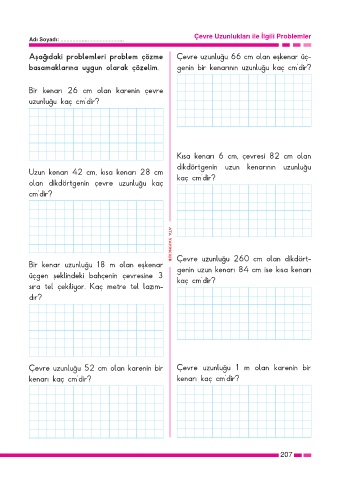 Adı Soyadı: ..........................................
Çevre Uzunlukları ile İlgili Problemler
Aşağıdaki problemleri problem çözme
basamaklarına uygun olarak çözelim.
Bir kenarı 26 cm olan karenin çevre
uzunluğu kaç cm'dir?
Uzun kenarı 42 cm, kısa kenarı 28 cm
olan dikdörtgenin çevre uzunluğu kaç
cm'dir?
Bir kenar uzunluğu 18 m olan eşkenar
üçgen şeklindeki bahçenin çevresine 3
sıra tel çekiliyor. Kaç metre tel lazım-
dır?
Çevre uzunluğu 52 cm olan karenin bir
kenarı kaç cm'dir?
Çevre uzunluğu 66 cm olan eşkenar üç-
genin bir kenarının uzunluğu kaç cm'dir?
Kısa kenarı 6 cm, çevresi 82 cm olan
dikdörtgenin uzun kenarının uzunluğu
kaç cm'dir?
Çevre uzunluğu 260 cm olan dikdört-
genin uzun kenarı 84 cm ise kısa kenarı
kaç cm'dir?
Çevre uzunluğu 1 m olan karenin bir
kenarı kaç cm'dir?
207